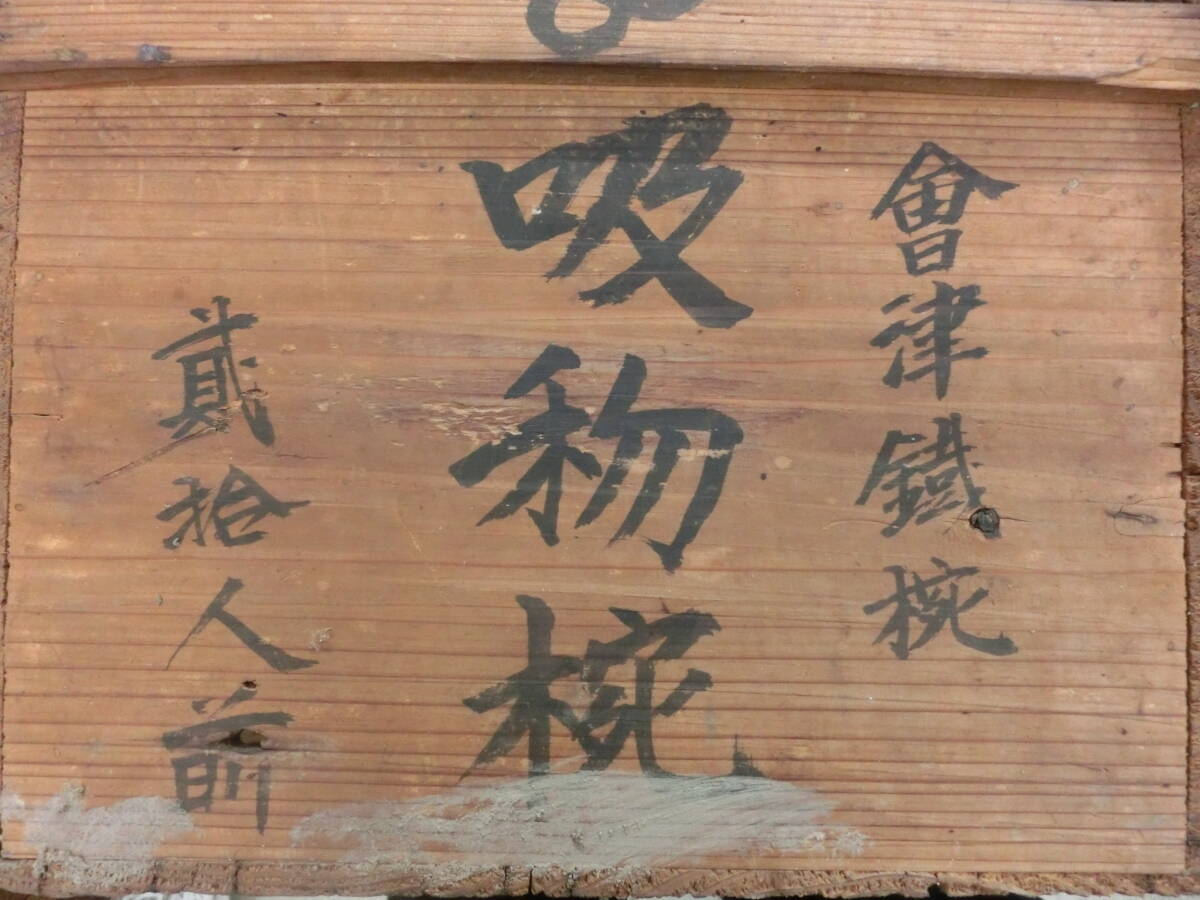 會津鐵椀
吸物椀
貳拾人前